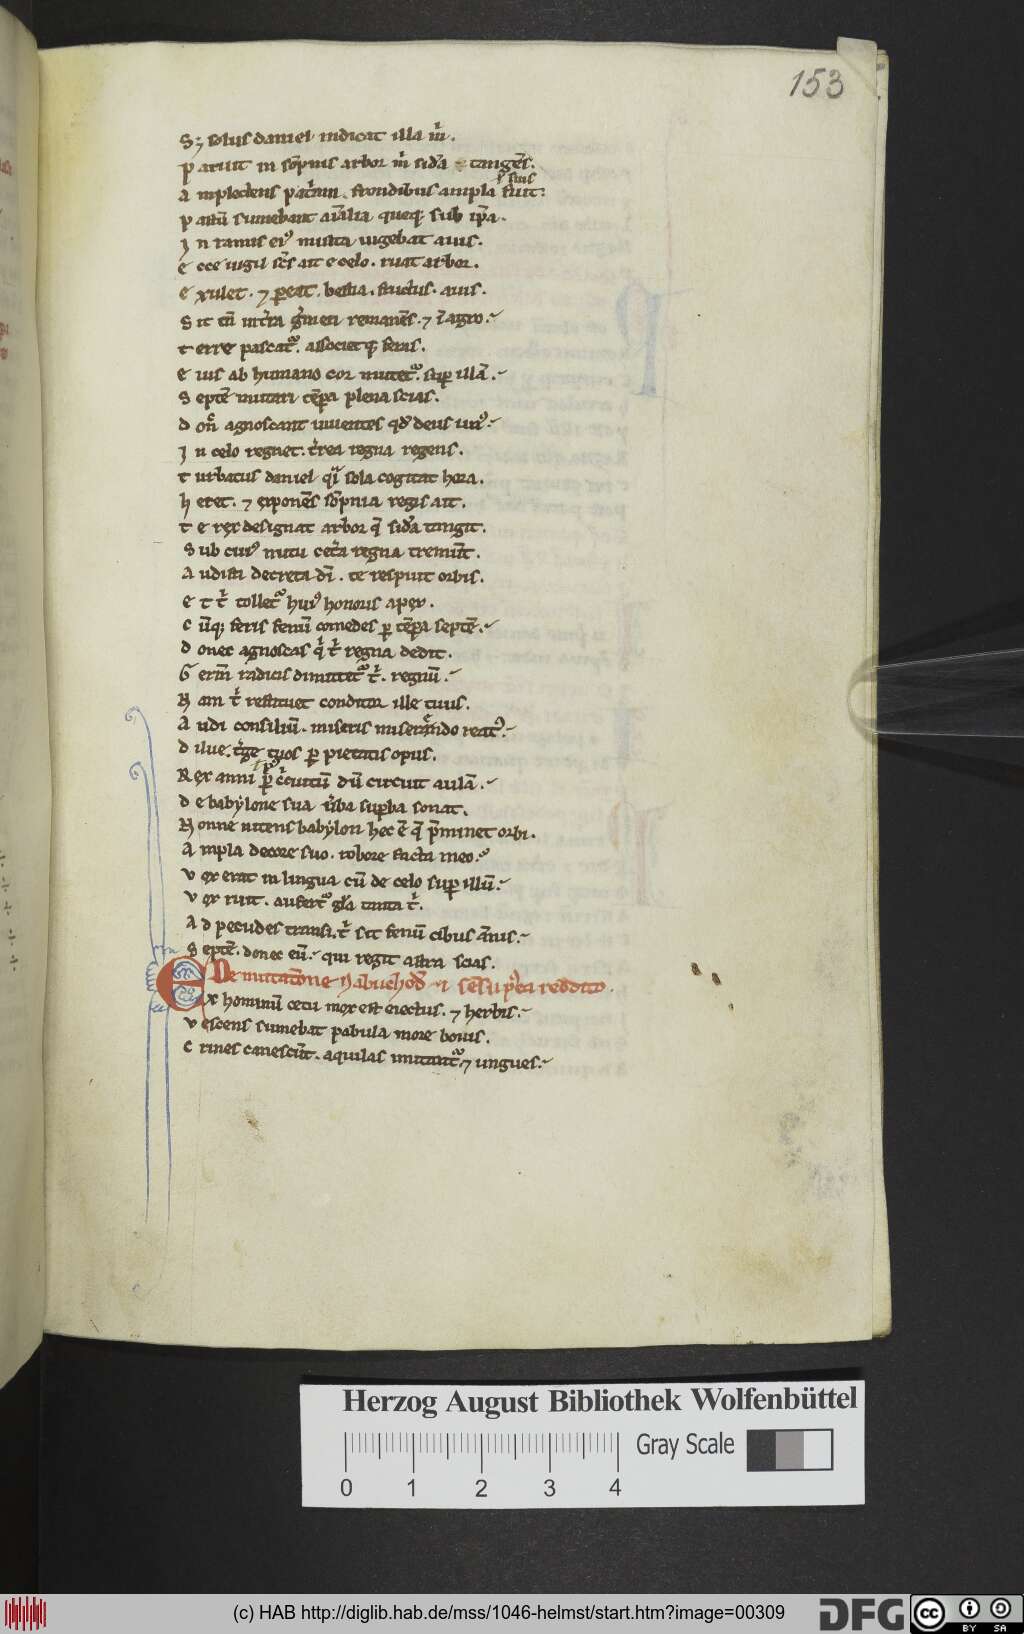 153
Sꝫ solus daniel indicat illa m̊.
p aruit in sōpnis arbor m̊ sid̾a tangēs.
A mplectens pat̾am. frondibus ampla fuit:
suis
p astū sumebant aīalia queq; sub ipa.
J n ramis ei⁹ mixta uigebat auis.
e cce uigil scs̄ ait e celo. ruat arbor.
e xulet. ⁊ ꝑeat. bestia. fructus. auis.
S it tn̄ int̾ra g̾men remanēs. ⁊ ī agro.
t erre pascat᷑. associetq; feras.
e ius ab humano cor mutet᷑. suꝑ illā.
S eptē mutari tēpa plena scias.
d on̄ agnoscant uiuentes qd̾ deus un⁹.
J n celo regnet. t̾rea regna regens.
t urbatus daniel q̾i sola cogitat hora.
h eret. ⁊ exponēs sōpnia regis ait.
t e rex designat arbor q̄ sid̾a tangit.
S ub cui⁹ nutu cet̾a regna tremūt.
A udisti decreta dī. te respuit orbis.
e t t̾ tollet᷑ hui⁹ honoris apex.
c ūq; feris fenū comedes ꝑ tēpa septē.
d onec agnoscas q̾ t̾ regna dedit.
G erm̄ radicis dimittit᷑ t̾. regnū.
N am t̾ restituet conditor ille tuus.
A udi consiliū. miseris miserando reat⁹.
d ilue. t̾ge tuos ꝑ pietatis opus.
R ex anni p⁹ c̾cuitū dū circuit aulā.
d e babylone sua ūba suꝑba sonat.
N onne nitens babylon hec ē q̄ p̄minet orbi.
A mpla decore suo. robore facta meo.
v ox erat in lingua cū de celo suꝑ illū.
v ox ruit. aufert᷑ gl̾a tanta t̾.
A d pecudes transi. t̾ sit fenū cibus ānis.
S eptē. donec eū. qui regit astra scias.
De mutatōne Nabuchod̾ ⁊ sēsu p⁹ea reddito.
Ex hominū cetu mox est eiectus. ⁊ herbis.
v escens sumebat pabula more bouis.
c rines canescūt. aquilas imitant᷑. ⁊ ungues.
Herzog August Bibliothek Wolfenbüttel
Gray Scale
0 1 2 3 4
(c) HAB http://diglib.hab.de/mss/1046-helmst/start.htm?image=00309
DFG
cc BY SA